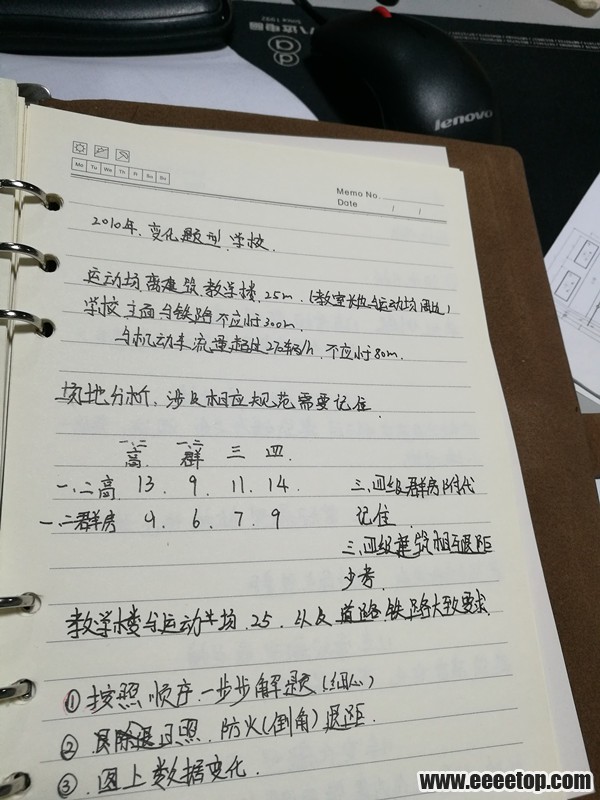 八达电脑
SINCE 1992
lenovo
Mo Tu We Th Fr Sa Su
Memo No.
Date / /
2010年.变化题型.学校.
运动场离建筑.教学楼.25m.(教室长边与运动场周边)
学校主面与铁路不应小于300m.
与机动车流量超过270辆/h.不应小于80m.
场地分析,涉及相应规范需要记住.
一、二高. 一、二群 三 四.
一、二高 13. 9. 11. 14. 三、四级群房时代
一、二群房 9. 6. 7. 9 记住.
三、四级建筑相互退距
少考.
教学楼与运动场.25.以及道路.铁路大致要求.
①按照顺序.一步步解题(细心)
② 退日照.防火(倒角)退距.
③.图上数据变化.
www.eeeetop.com